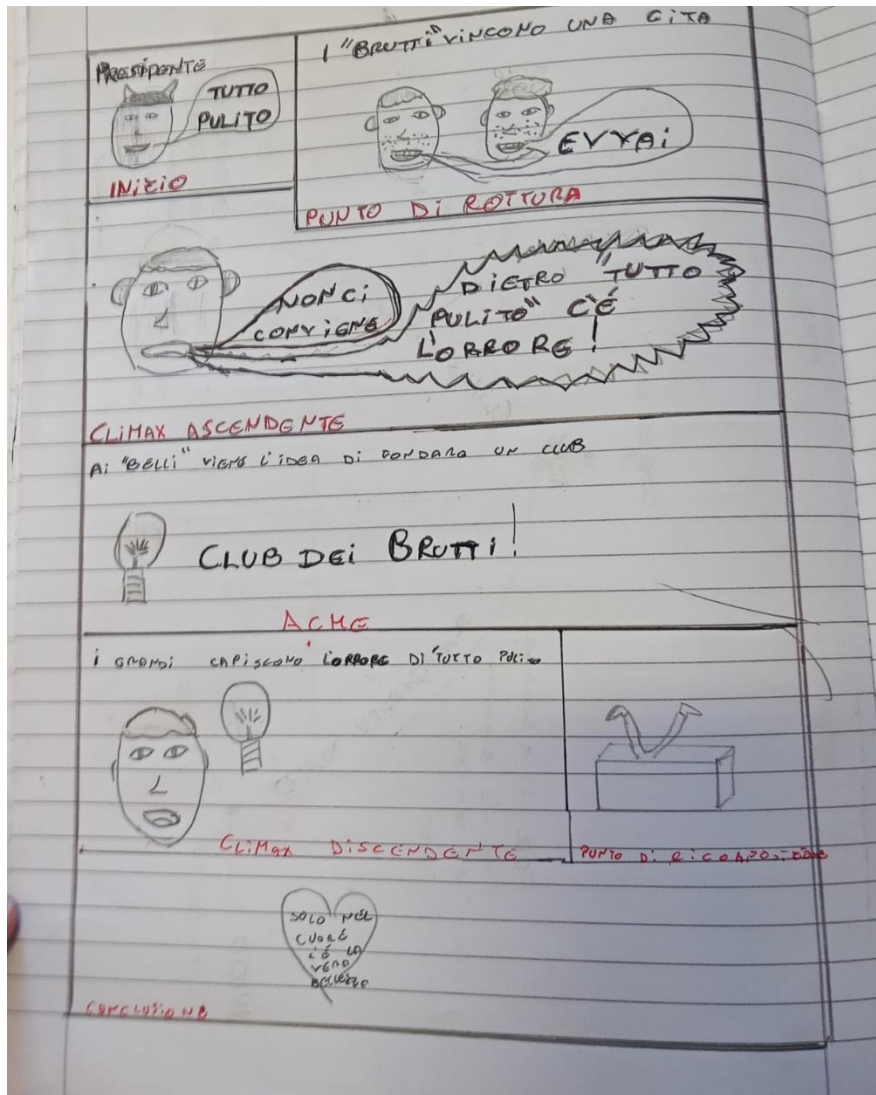 PRESIDENTE
TUTTO
PULITO
INIZIO
I "BRUTTI" VINCONO UNA GITA
EVVAI
PUNTO DI ROTTURA
NON CI
CONVIENE
DIETRO "TUTTO
PULITO" C'É
L'ORRORE!
CLIMAX ASCENDENTE
AI "BELLI" VIENE L'IDEA DI FONDARE UN CLUB
CLUB DEI BRUTTI!
ACME
I GRANDI CAPISCONO L'ORRORE DI "TUTTO PULITO
CLIMAX DISCENDENTE
PUNTO DI RICOMPOSIZIONE
SOLO NEL
CUORE
C'É LA
VERA
BELLEZZA
CONCLUSIONE